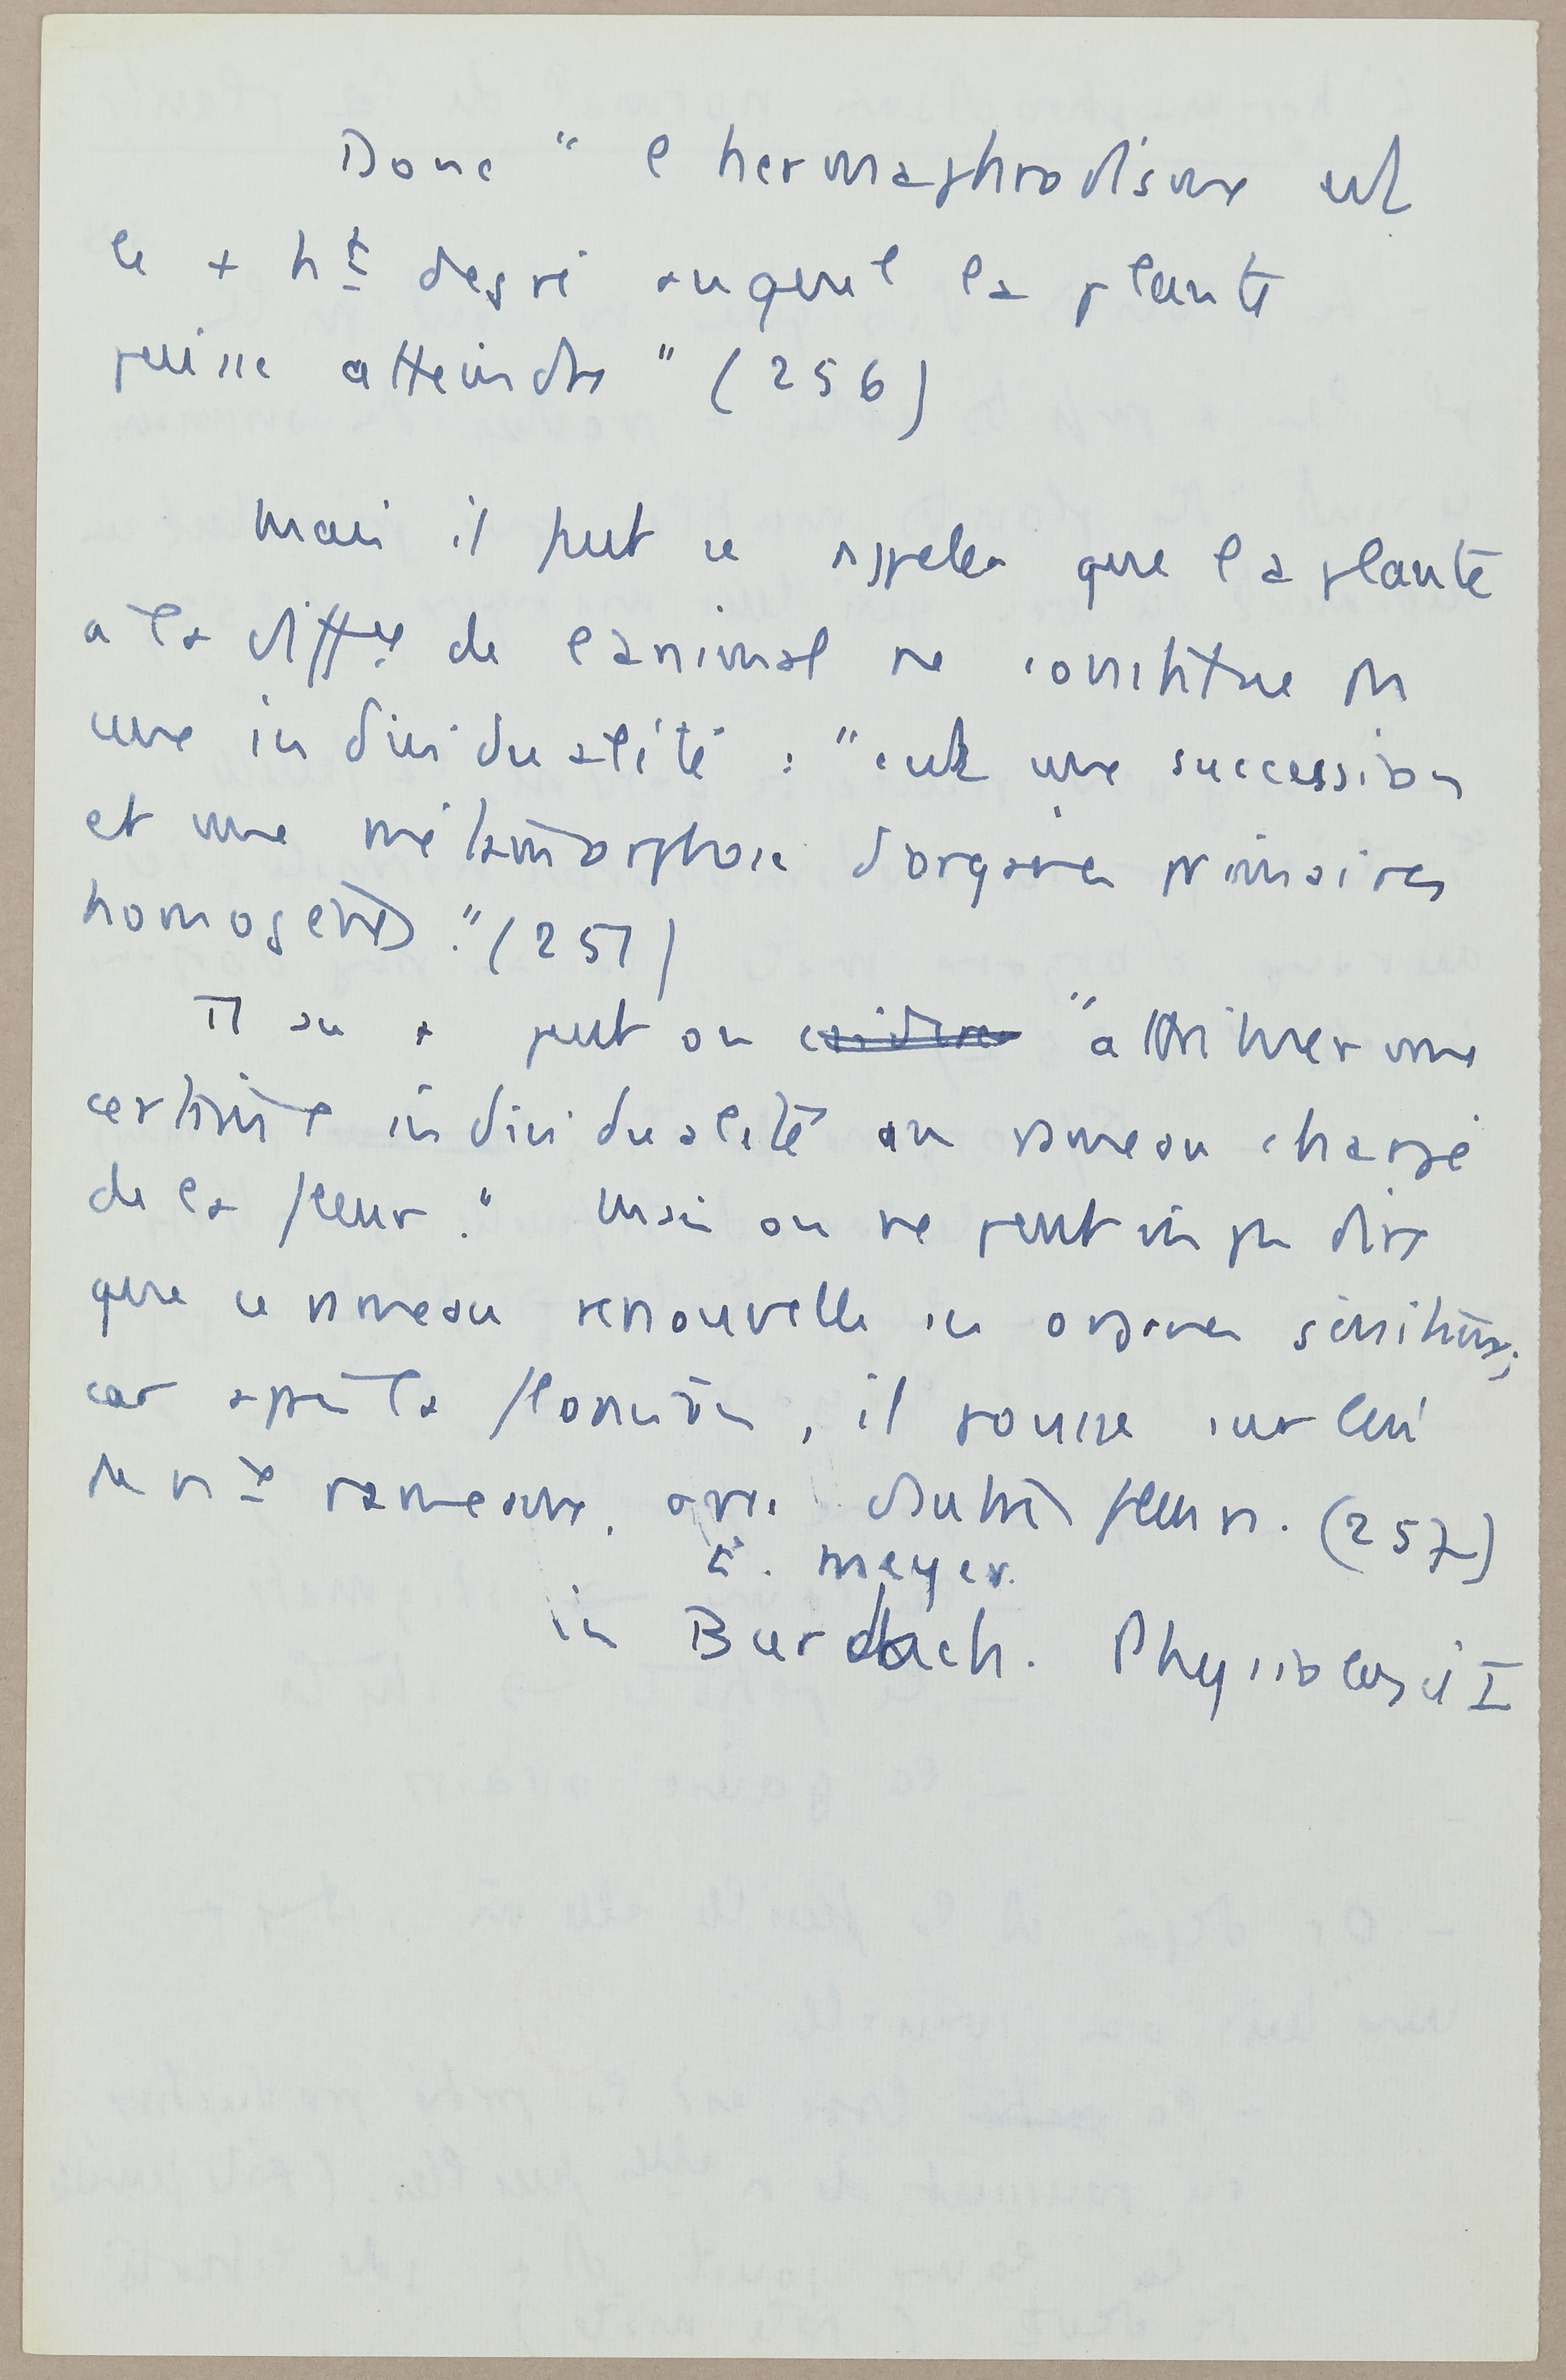 Donc " l hermaphrodisme est
le + ht degré auquel la plante
puisse atteindre " (256)
Mais il faut se rappeler que la plante
a la diffce de l'animal ne constitue pas
une individualité : " c'est une succession
et une métamorphose d'organes primaires
homogènes." (257)
Tt au + peut on "attribuer une
certaine individualité au rameau chargé
de la fleur." Mais on ne peut pas dire
que ce rameau renouvelle ses organes génitaux;
car après la floraison, il pousse sur lui
de nx rameaux, avec d'autres fleurs. (257)
E. Meyer.
in Burdach. Physiologie I